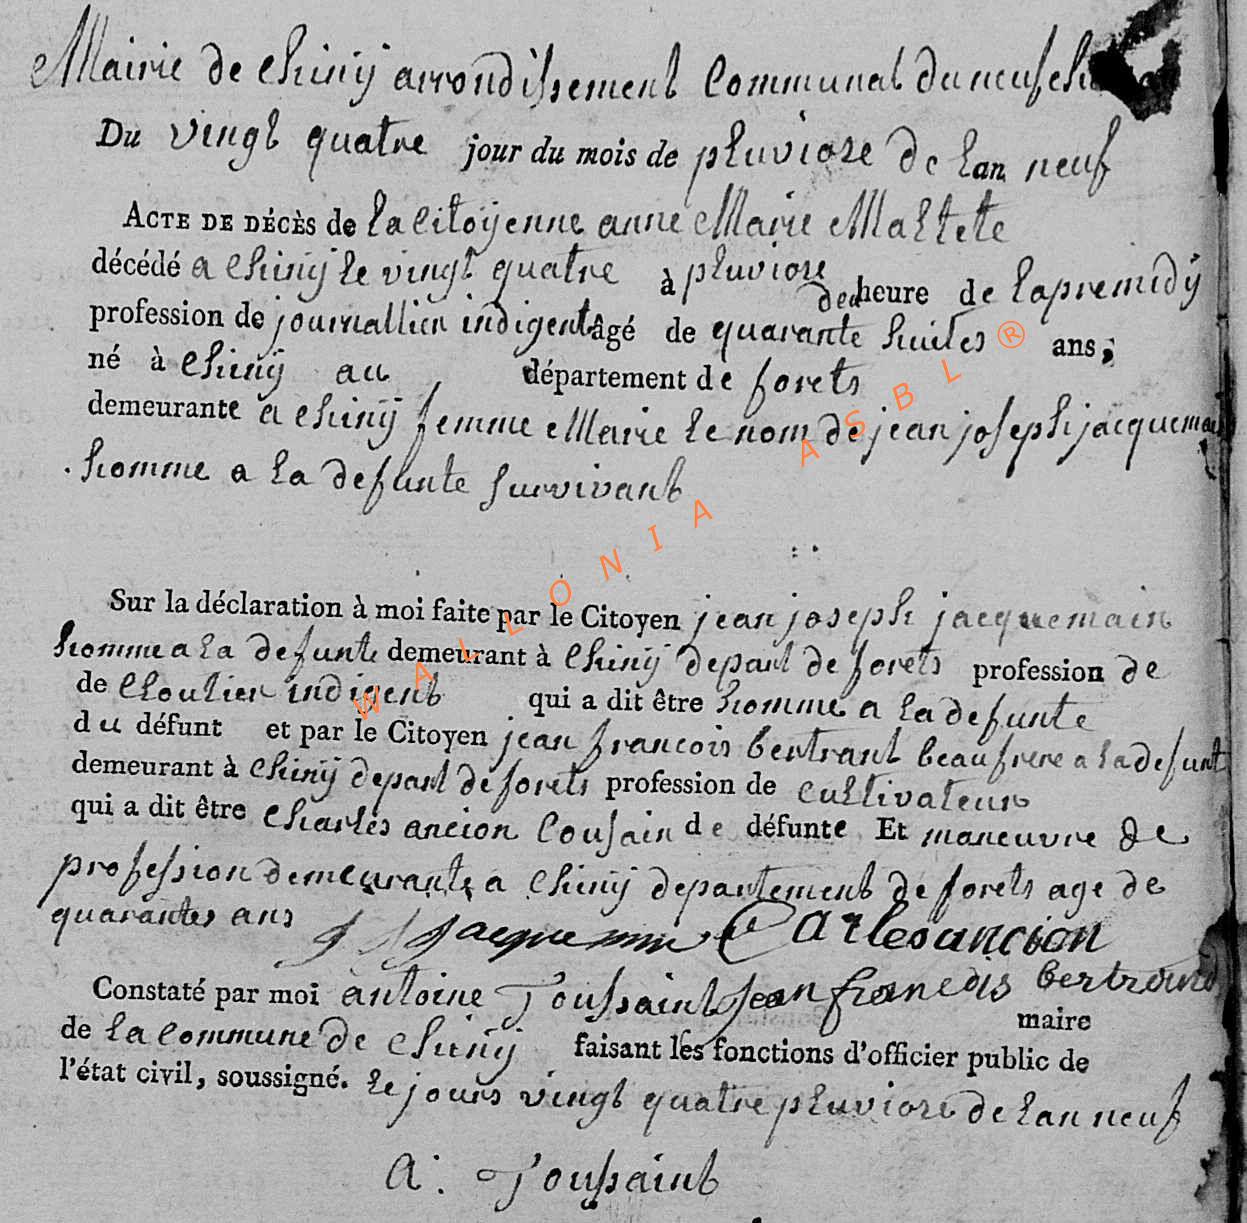 Mairie de chinij arrondissement Communal du neufch
Du vingt quatre jour du mois de pluviose de lan neuf
ACTE DE DÉCÈS de la citoÿenne anne Marie Maltete
décédé a chinij le vingt quatre à pluviose heure de lapremidij
profession de journallier indigent âgé de quarante huites ans,
né à chinij au département de forets
demeurante a chinij femme Marie le nom de jean joseph jacquemain
homme a la defunte survivant
Sur la déclaration à moi faite par le Citoyen jean joseph jacquemain
homme a la defunte demeurant à chinij depart de forets profession de
de cloutier indigent qui a dit être homme a la defunte
du défunt et par le Citoyen jean francois bertrant beaufrere a la defunt
demeurant à chinij depart de forets profession de cultivateur
qui a dit être charles ancion cousain de défunte Et maneuvre de
profession demeurante a chinij departement de forets age de
quarantes ans J J Jacquemin Carles ancion
Constaté par moi antoine Toussaint Jean francois bertrand
maire
de la commune de chinij faisant les fonctions d'officier public de
l'état civil, soussigné. le jours vingt quatre pluviose de lan neuf
a. Toussaint
WALLONIA ASBL ®